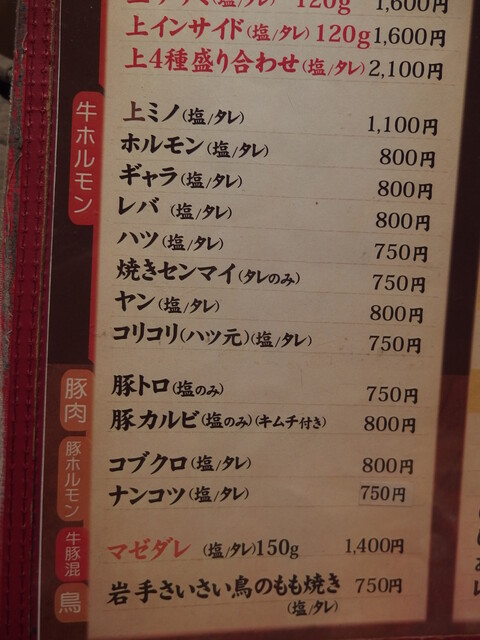 120g 1,600円
上インサイド(塩/タレ) 120g 1,600円
上4種盛り合わせ(塩/タレ) 2,100円
牛ホルモン
上ミノ(塩/タレ) 1,100円
ホルモン(塩/タレ) 800円
ギャラ(塩/タレ) 800円
レバ(塩/タレ) 800円
ハツ(塩/タレ) 750円
焼きセンマイ(タレのみ) 750円
ヤン(塩/タレ) 800円
コリコリ(ハツ元)(塩/タレ) 750円
豚肉
豚トロ(塩のみ) 750円
豚カルビ(塩のみ)(キムチ付き) 800円
豚ホルモン
コブクロ(塩/タレ) 800円
ナンコツ(塩/タレ) 750円
牛豚混
マゼダレ (塩/タレ)150g 1,400円
鳥
岩手さいさい鳥のもも焼き 750円
(塩/タレ)